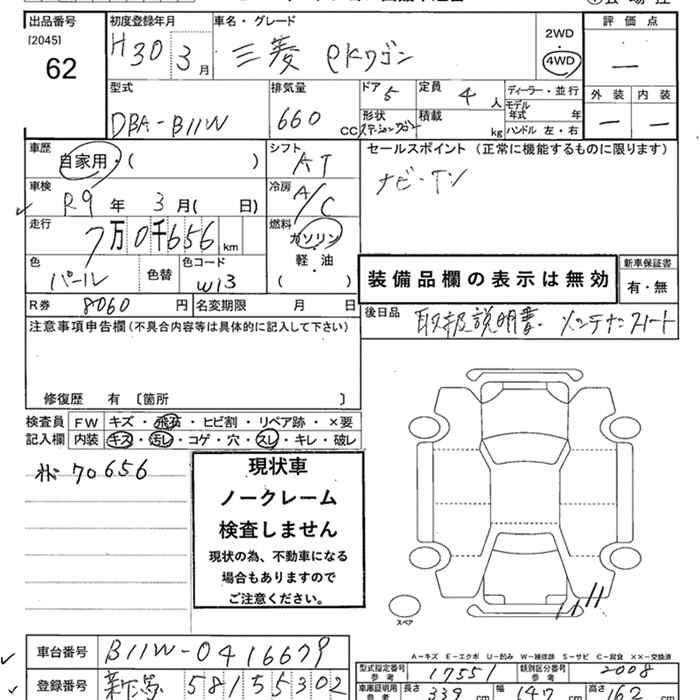 出品番号 初度登録年月 車名・グレード 評価点
[2045] H30 3月 三菱 eKワゴン 2WD
62 4WD —
型式 排気量 ドア 5 定員 4人 ディーラー・並行 外装 内装
DBA-B11W 660 CC 形状 ステーションワゴン 積載 kg モデル年式 年 — —
ハンドル 左・右
車歴 自家用・( ) シフト AT セールスポイント (正常に機能するものに限ります)
車検 R9年 3月( 日) 冷房 A/C ナビ・TV
走行 7万0千656km 燃料 ガソリン
軽・油
( )
色 パール 色替 色コード W13 装備品欄の表示は無効 新車保証書
有・無
R券 8060円 名変期限 月 日 後日品 取扱説明書 メンテナンスノート
注意事項申告欄(不具合内容等は具体的に記入して下さい)
修復歴 有 〔箇所 〕
検査員 FW キズ・飛石・ヒビ割・リペア跡・×要
記入欄 内装 キズ・汚レ・コゲ・穴・スレ・キレ・破レ
70656
現状車
ノークレーム
検査しません
現状の為、不動車になる
場合もありますので
ご注意ください。
スペア
車台番号 B11W-0416679
A-キズ E-エクボ U-凹み W-補修跡 S-サビ C-腐食 ××-交換済
型式指定番号 参考 17551 類別区分番号 参考 2008
登録番号 581 55302
車庫証明用 参考 長さ 339 cm 幅 147 cm 高さ 162 cm